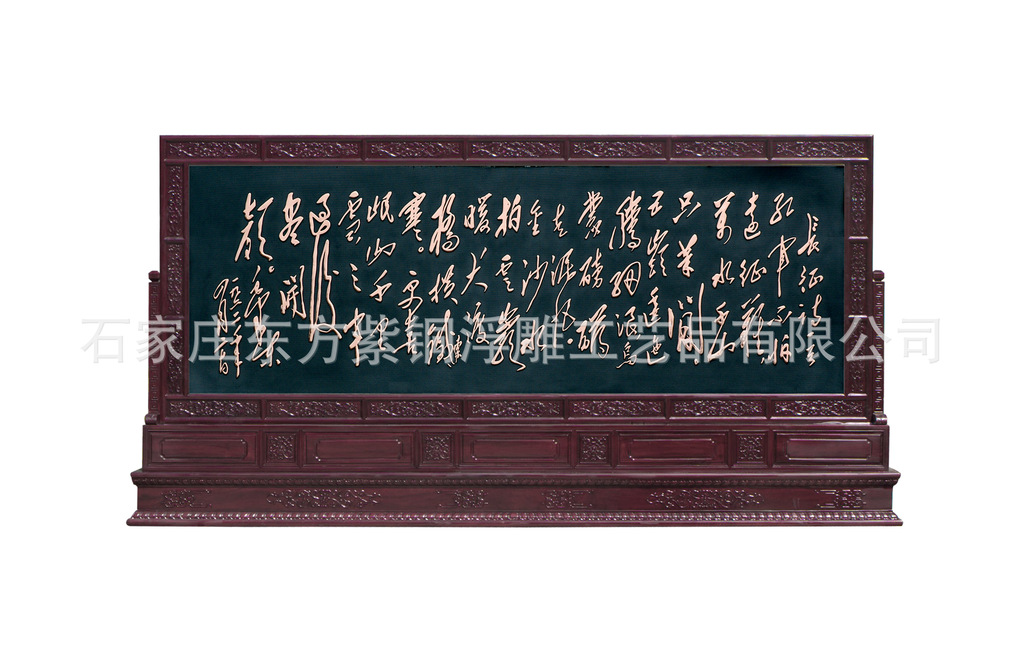 長征詩一首
红軍不怕
遠征難
萬水千山
只等閒
五嶺逶迤
騰細浪烏
蒙磅礴
走泥丸
金沙水
拍雲崖
暖大渡
橋橫鐵索
寒更喜
岷山千里
雪三軍
過後
盡開
顏 毛澤東
石家庄东方紫铜浮雕工艺品有限公司